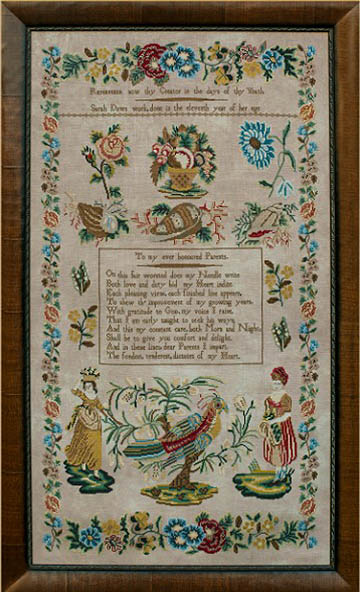 Remember now thy Creator in the days of thy Youth.
Sarah Dawes work, done in the eleventh year of her age
To my ever honoured Parents.
On this fair worsted does my Needle write
Both love and duty bid my Heart indite
Each pleasing view, each finished line appears,
To shew th' improvement of my growing years.
With gratitude to God, my voice I raise,
That I am early taught to seek his ways,
And this my constant care, both Morn and Night,
Shall be to give you comfort and delight.
And in these lines, dear Parents I impart,
The fondest, tenderest, dictates of my Heart.